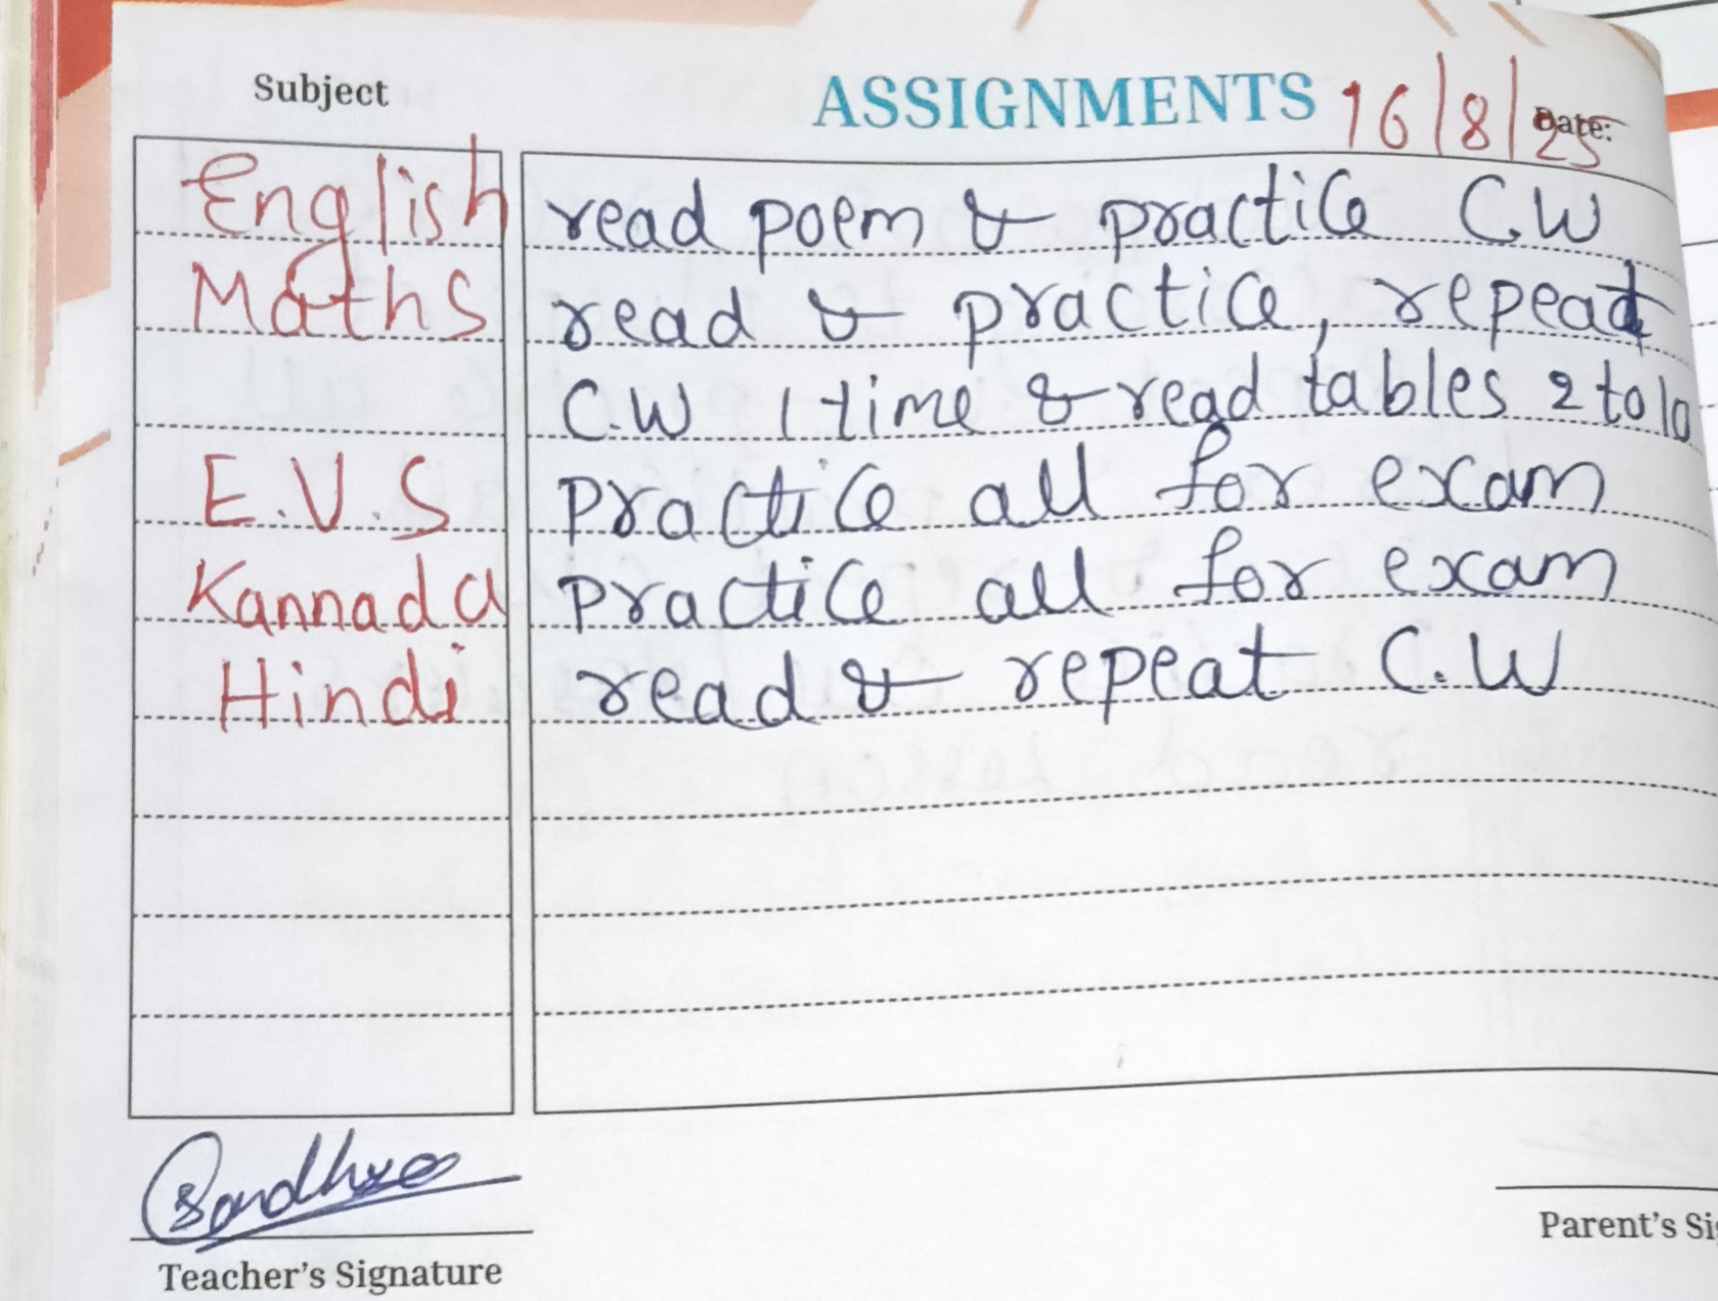 Subject ASSIGNMENTS 16/8/25 Date:
English read poem & practice C.W
Maths read & practice, repeat
C.W 1 time & read tables 2 to 10
E.V.S practice all for exam
Kannada practice all for exam
Hindi read & repeat C.W
Teacher's Signature
Parent's Si